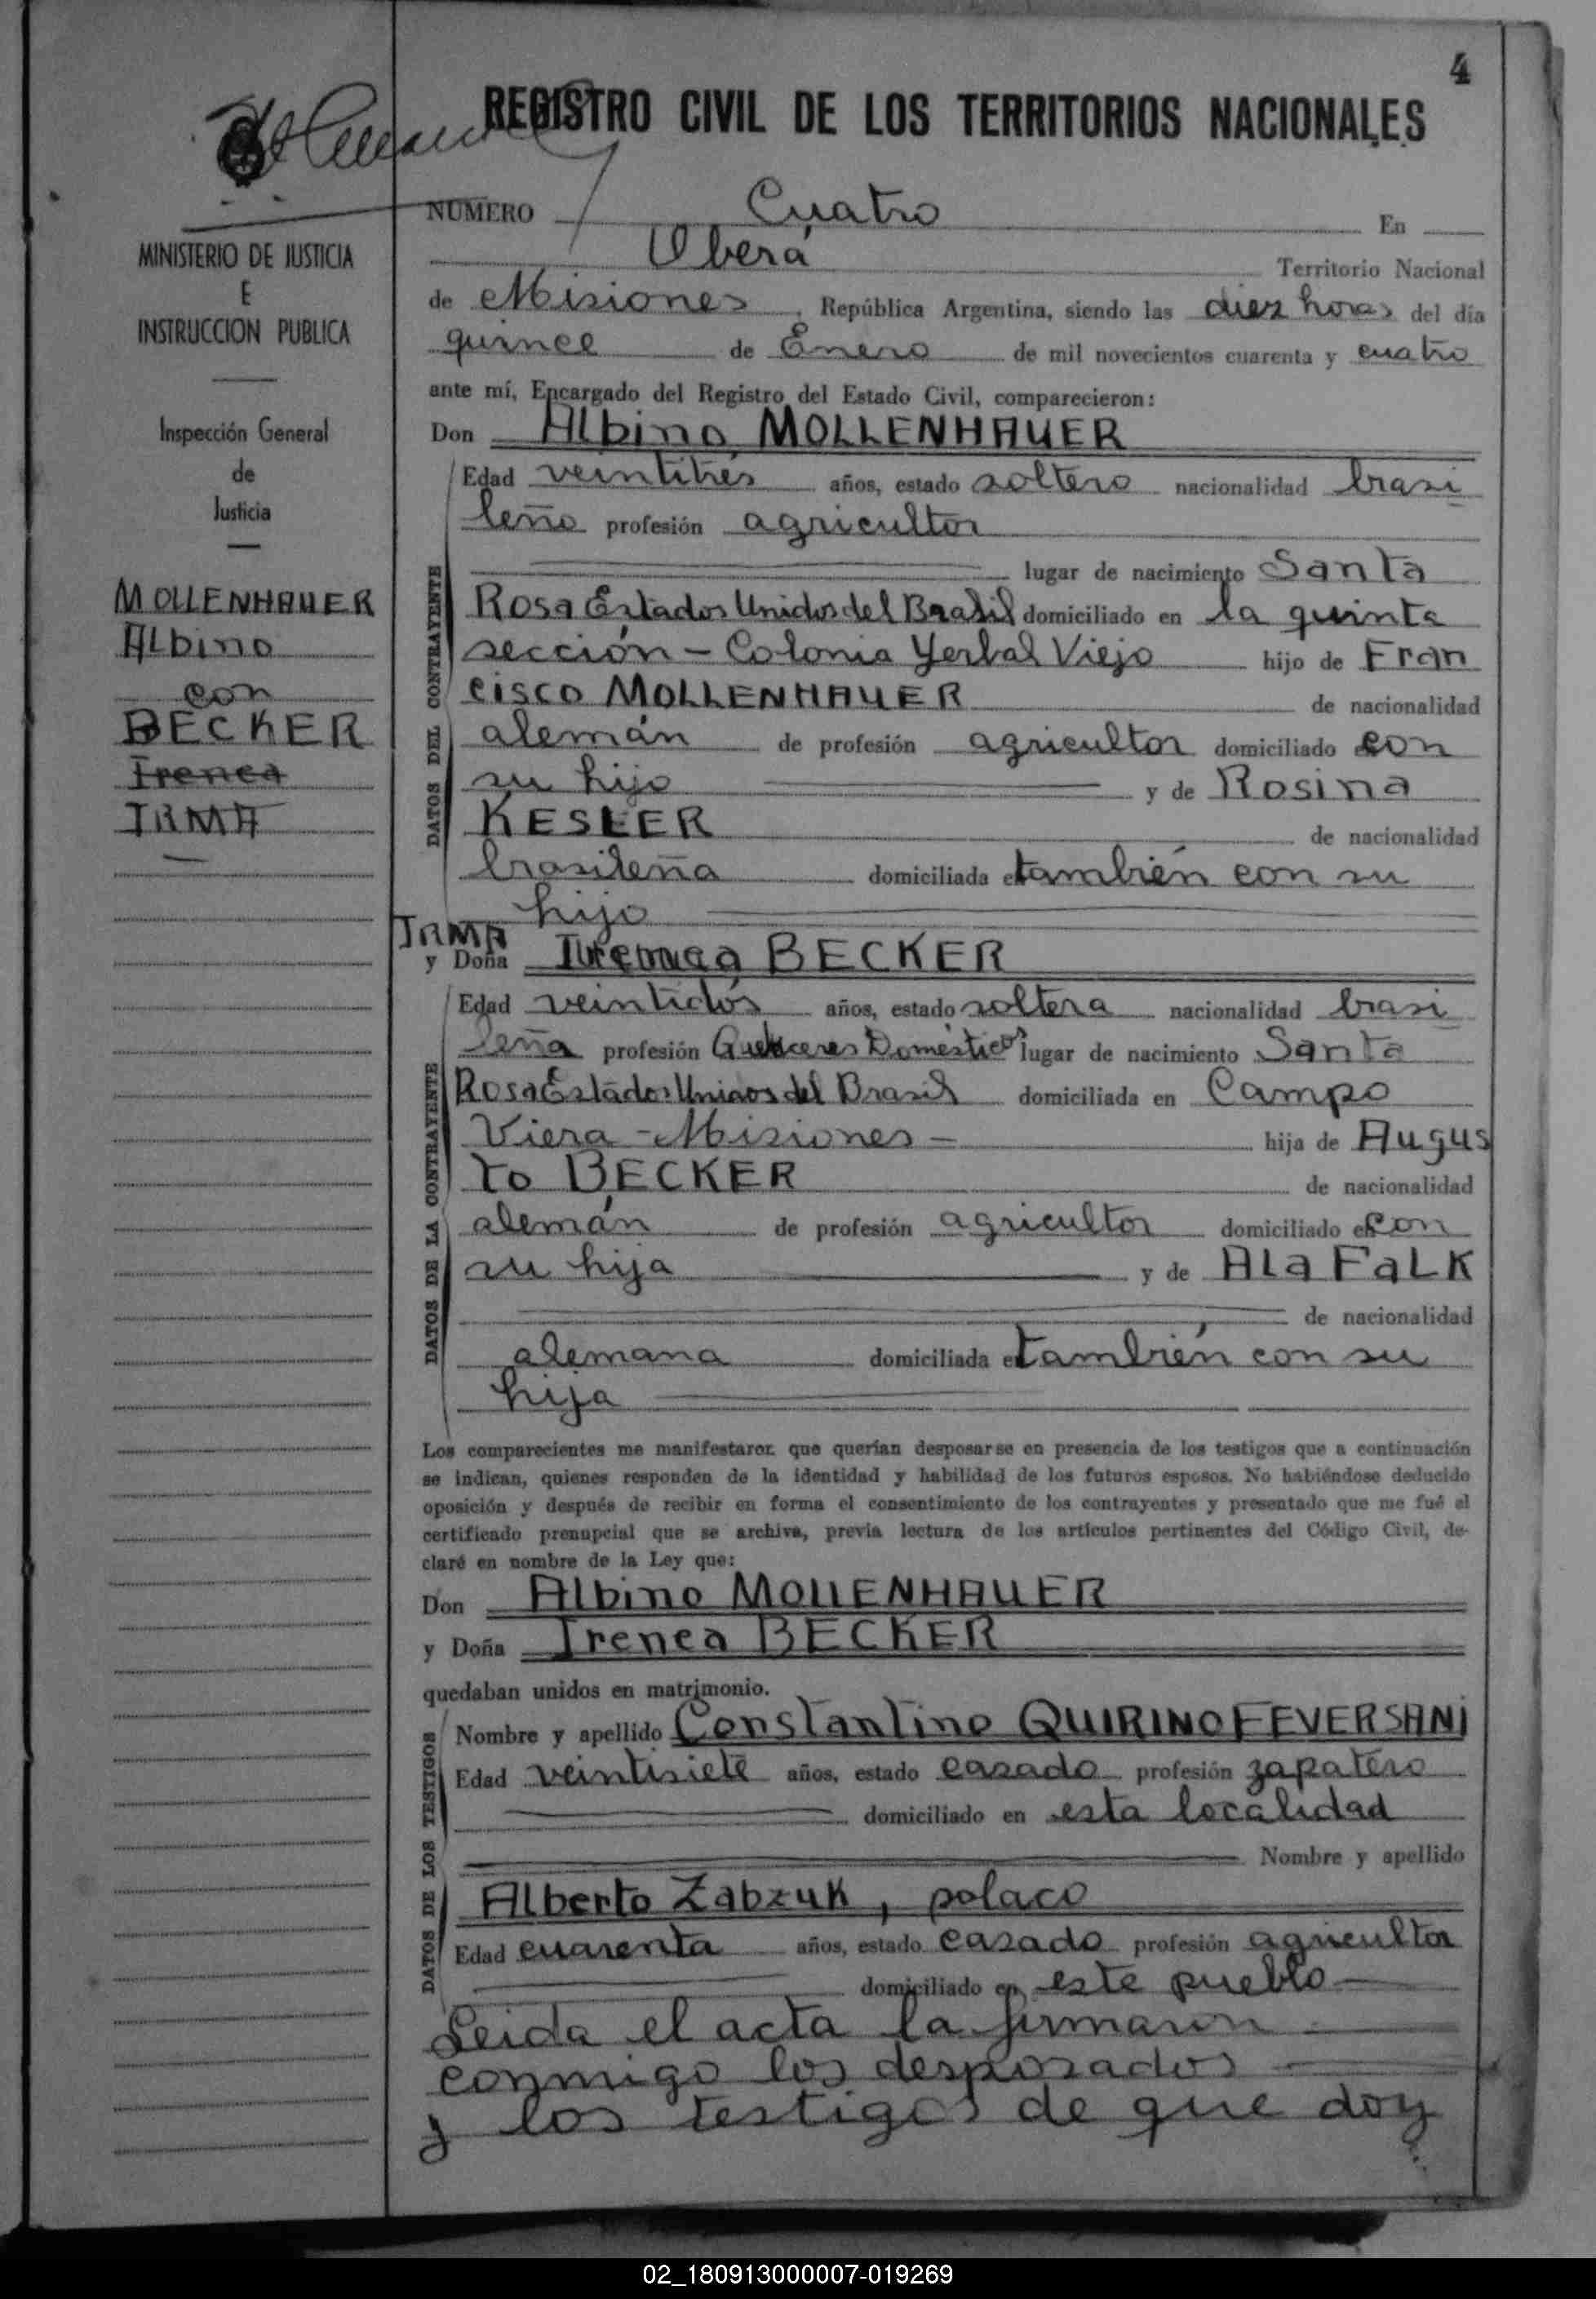 4
REGISTRO CIVIL DE LOS TERRITORIOS NACIONALES
MINISTERIO DE JUSTICIA
E
INSTRUCCION PUBLICA
Inspección General
de
Justicia
MOLLENHAUER
Albino
con
BECKER
Irenea
IRMA
NUMERO Cuatro En
Oberá Territorio Nacional
de Misiones, República Argentina, siendo las diez horas del día
quince de Enero de mil novecientos cuarenta y cuatro
ante mí, Encargado del Registro del Estado Civil, comparecieron:
Don Albino MOLLENHAUER
DATOS DEL CONTRAYENTE
Edad veintitrés años, estado soltero nacionalidad brasi
leño profesión agricultor
lugar de nacimiento Santa
Rosa Estados Unidos del Brasil domiciliado en la quinta
sección - Colonia Yerbal Viejo hijo de Fran
cisco MOLLENHAUER de nacionalidad
alemán de profesión agricultor domiciliado con
su hijo y de Rosina
KESLER de nacionalidad
brasileña domiciliada en también con su
hijo
IRMA
y Doña Irenea BECKER
DATOS DE LA CONTRAYENTE
Edad veintidós años, estado soltera nacionalidad brasi
leña profesión Quehaceres Domésticos lugar de nacimiento Santa
Rosa Estados Unidos del Brasil domiciliada en Campo
Viera - Misiones - hija de Augus
to BECKER de nacionalidad
alemán de profesión agricultor domiciliado en con
su hija y de Ala FaLK
de nacionalidad
alemana domiciliada en también con su
hija
Los comparecientes me manifestaron que querían desposarse en presencia de los testigos que a continuación
se indican, quienes responden de la identidad y habilidad de los futuros esposos. No habiéndose deducido
oposición y después de recibir en forma el consentimiento de los contrayentes y presentado que me fué el
certificado prenupcial que se archiva, previa lectura de los artículos pertinentes del Código Civil, de-
claré en nombre de la Ley que:
Don Albino MOLLENHAUER
y Doña Irenea BECKER
quedaban unidos en matrimonio.
DATOS DE LOS TESTIGOS
Nombre y apellido Constantino QUIRINO FEVERSANI
Edad veintisiete años, estado casado profesión zapatero
domiciliado en esta localidad
Nombre y apellido
Alberto Zabzuk, polaco
Edad cuarenta años, estado casado profesión agricultor
domiciliado en este pueblo
Leida el acta la firmaron
conmigo los desposados
y los testigos de que doy
02_180913000007-019269